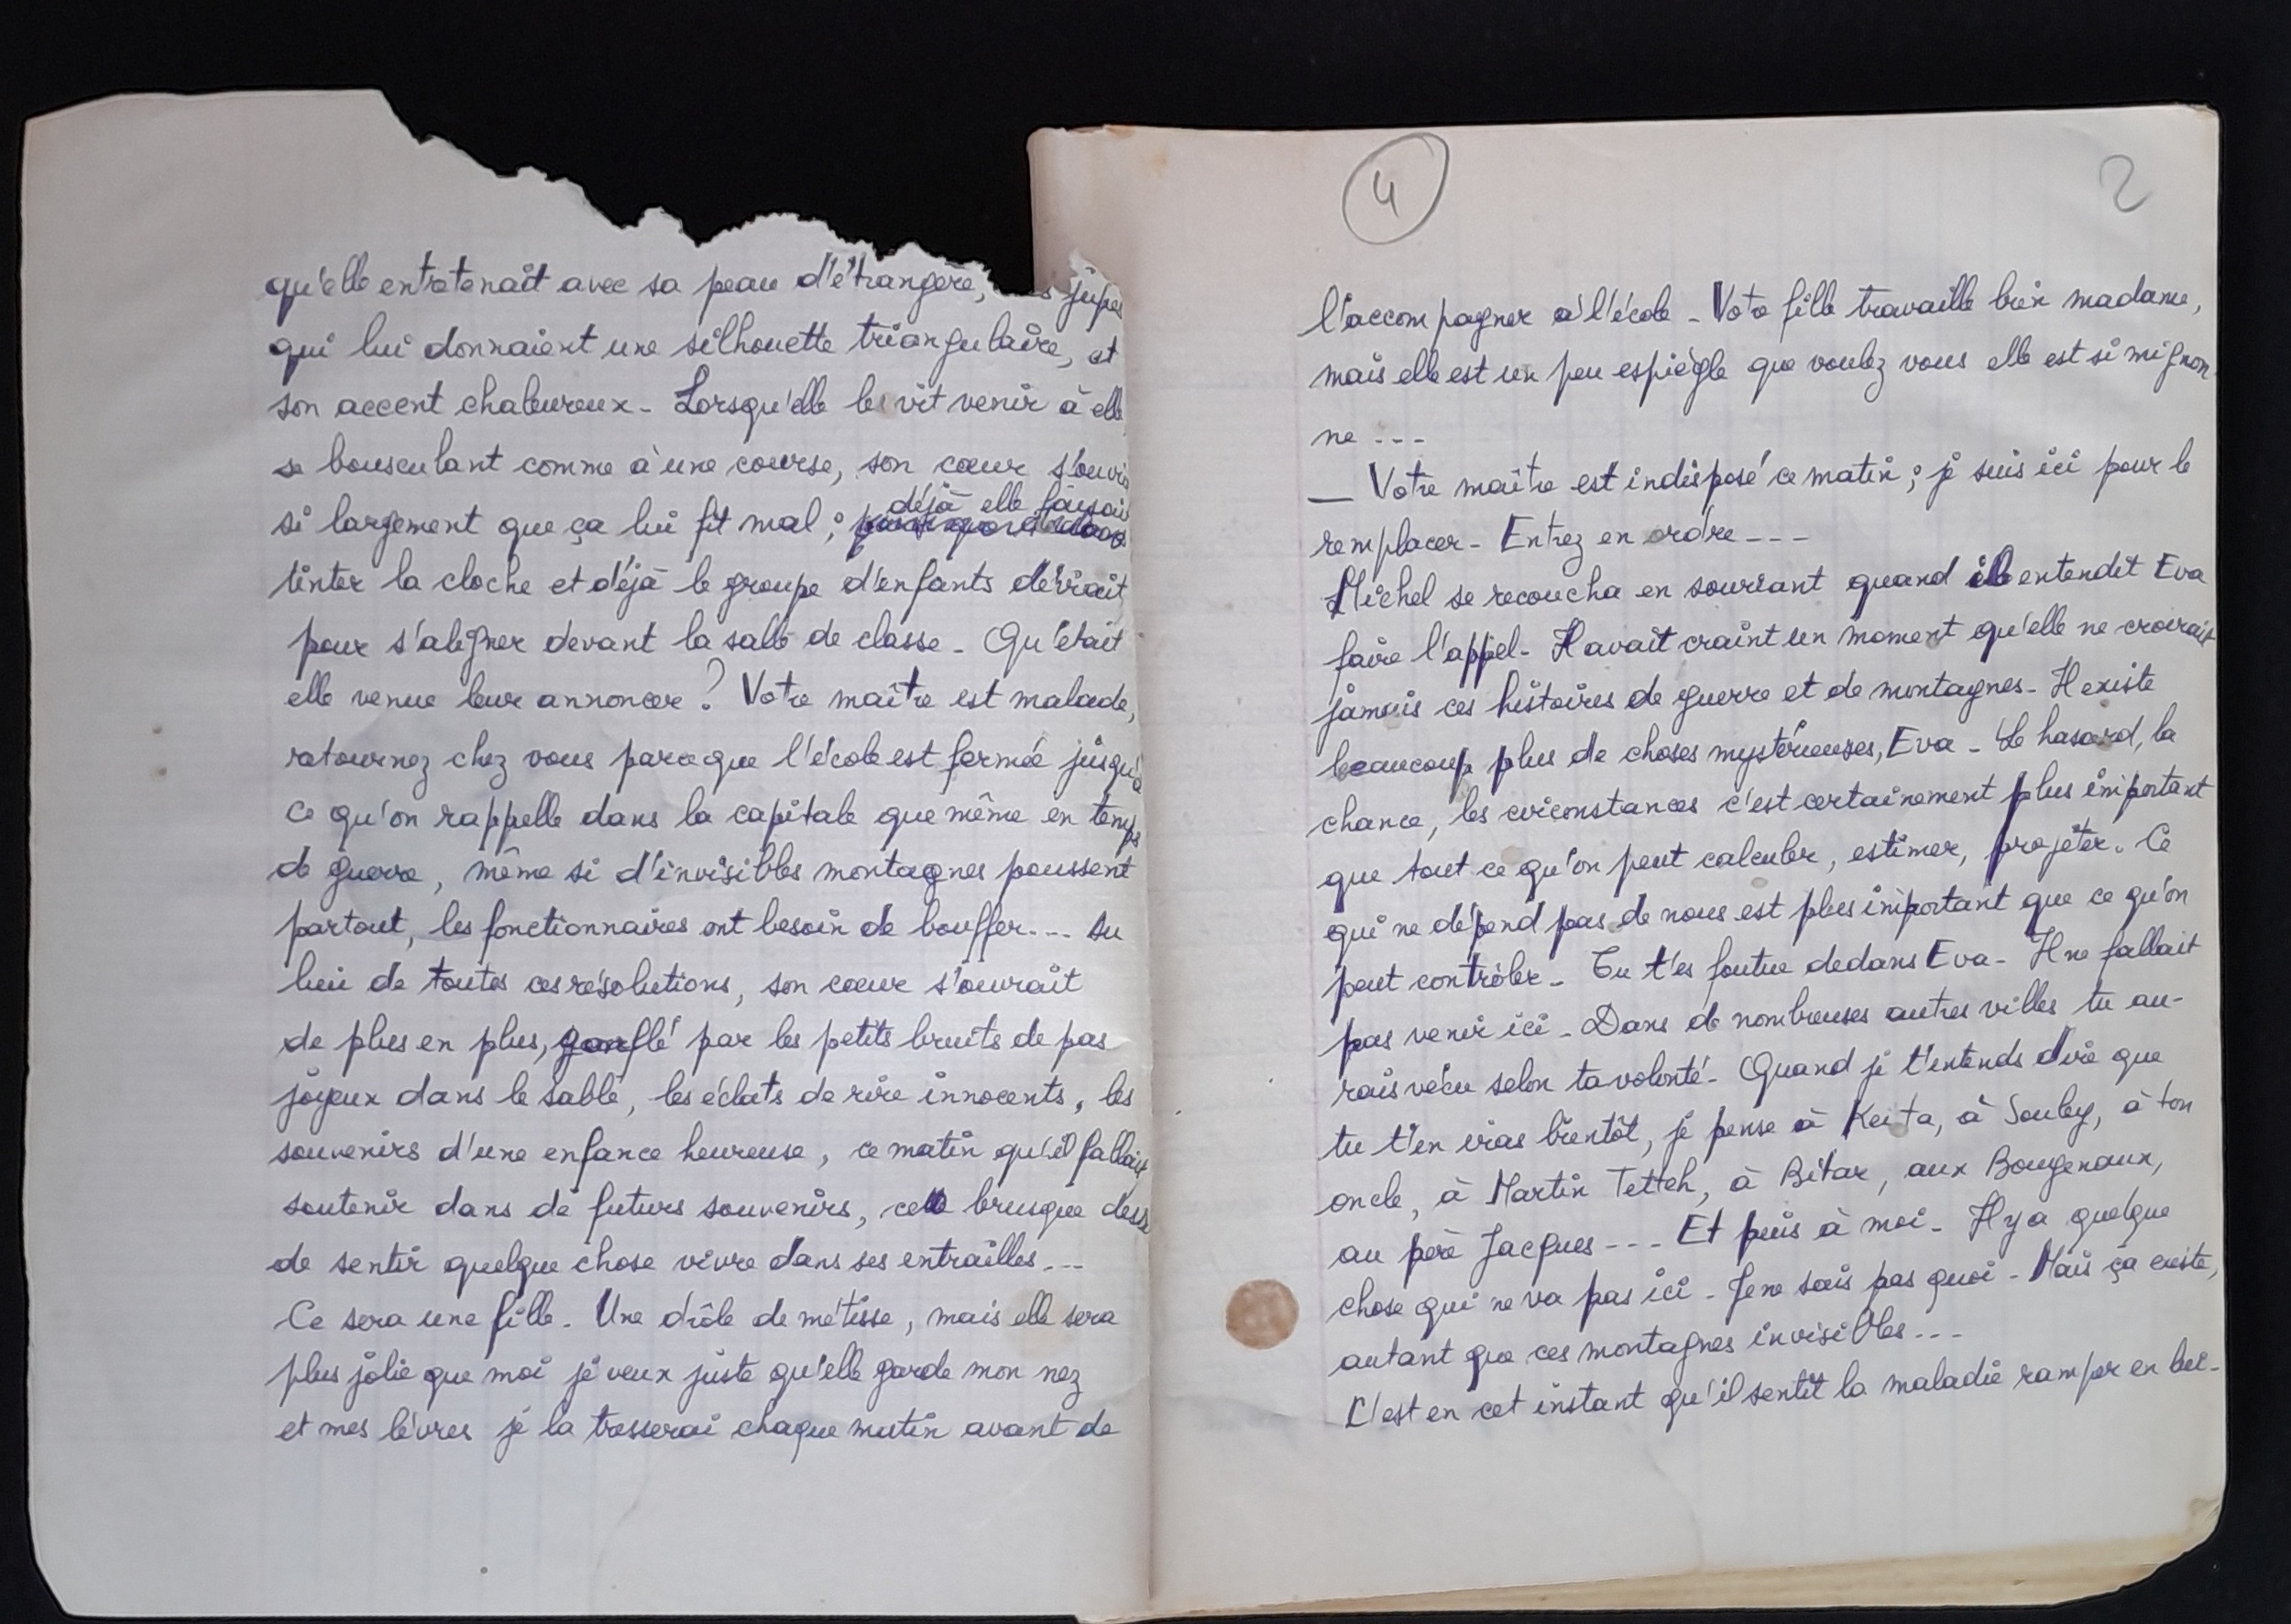 qu'elle entretenait avec sa peau d'étrangère, jupes
qui lui donnaient une silhouette triangulaire, et
son accent chaleureux - Lorsqu'elle les vit venir à elle
se bousculant comme à une course, son cœur s'ouvrit
déjà elle faisait
si largement que ça lui fit mal ;
tinter la cloche et déjà le groupe d'enfants déviait
pour s'aligner devant la salle de classe - Qu'était
elle venue leur annoncer ? Votre maître est malade,
retournez chez vous parceque l'école est fermée jusqu'à
ce qu'on rappelle dans la capitale que même en temps
de guerre, même si d'invisibles montagnes poussent
partout, les fonctionnaires ont besoin de bouffer --- Au
lieu de toutes ces résolutions, son cœur s'ouvrait
de plus en plus, gonflé par les petits bruits de pas
joyeux dans le sable, les éclats de rire innocents, les
souvenirs d'une enfance heureuse, ce matin qu'il fallait
soutenir dans de futurs souvenirs, cette brusque
de sentir quelque chose vivre dans ses entrailles ---
Ce sera une fille - Une drôle de métisse, mais elle sera
plus jolie que moi je veux juste qu'elle garde mon nez
et mes lèvres je la tresserai chaque matin avant de
4
2
l'accompagner à l'école - Votre fille travaille bien madame,
mais elle est un peu espiègle que voulez vous elle est si mignon
ne ---
— Votre maître est indisposé ce matin ; je suis ici pour le
remplacer - Entrez en ordre ---
Michel se recoucha en souriant quand il entendit Eva
faire l'appel - Il avait craint un moment qu'elle ne croirait
jamais ces histoires de guerre et de montagnes - Il existe
beaucoup plus de choses mystérieuses, Eva - Le hasard, la
chance, les circonstances c'est certainement plus important
que tout ce qu'on peut calculer, estimer, projeter. Ce
qui ne dépend pas de nous est plus important que ce qu'on
peut contrôler - Tu t'es foutue dedans Eva - Il ne fallait
pas venir ici - Dans de nombreuses autres villes tu au-
rais vécu selon ta volonté - Quand je t'entends dire que
tu t'en iras bientôt, je pense à Keita, à Souley, à ton
oncle, à Martin Tetteh, à Bitar, aux Bougenaux,
au père Jacques --- Et puis à moi - Il y a quelque
chose qui ne va pas ici - Je ne sais pas quoi - Mais ça existe,
autant que ces montagnes invisibles ---
C'est en cet instant qu'il sentit la maladie ramper en lui -